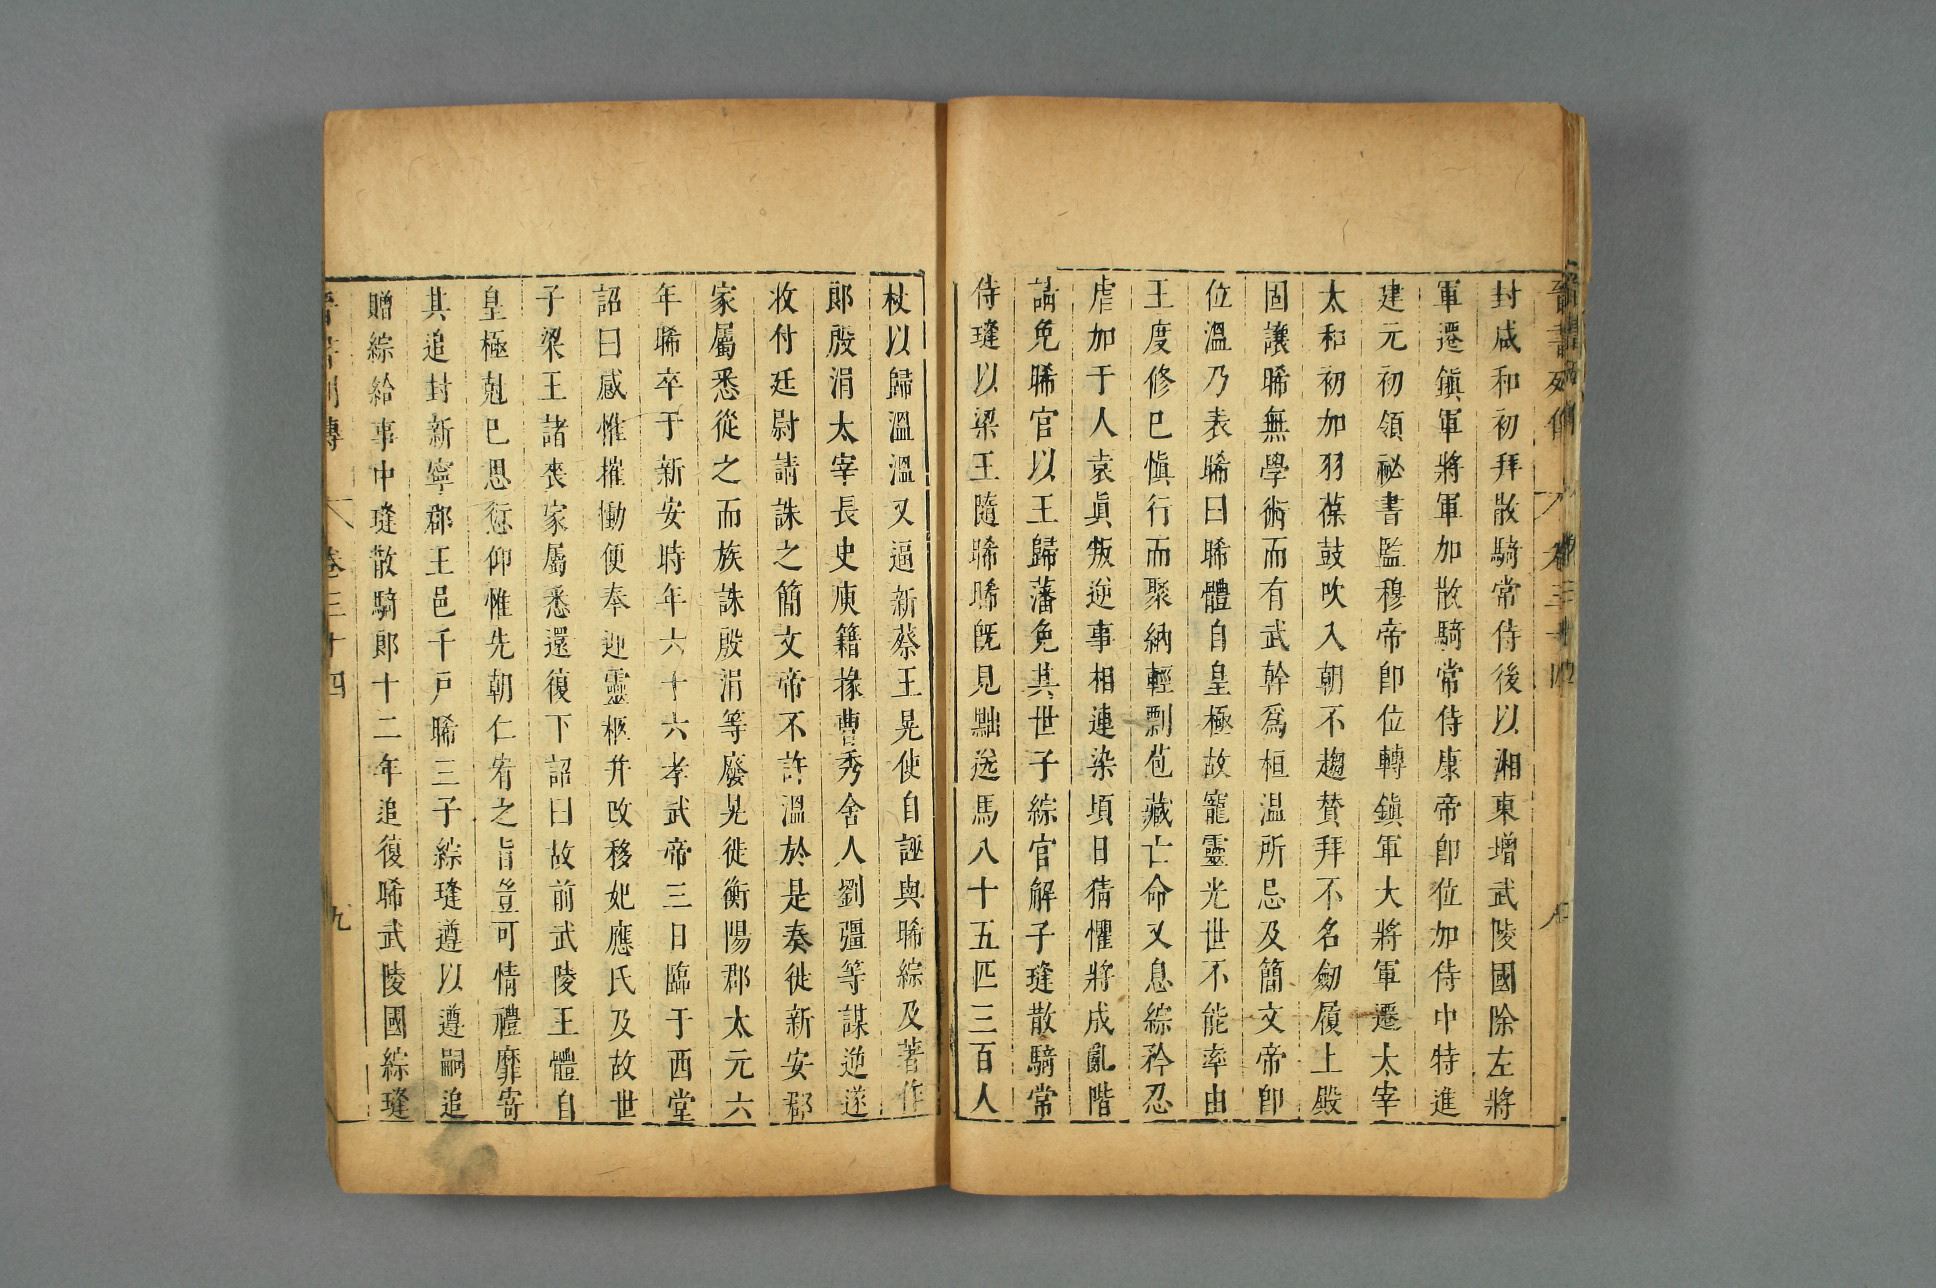 晉書列傳 卷三十四 八
封咸和初拜散騎常侍後以湘東增武陵國除左將
軍遷鎮軍將軍加散騎常侍康帝卽位加侍中特進
建元初領祕書監穆帝卽位轉鎮軍大將軍遷太宰
太和初加羽葆鼓吹入朝不趨贊拜不名劒履上殿
固讓晞無學術而有武幹爲桓温所忌及簡文帝卽
位溫乃表晞曰晞體自皇極故寵靈光世不能率由
王度修已愼行而聚納輕剽苞藏亡命又息綜矜忍
虐加于人袁眞叛逆事相連染頃日猜懼將成亂階
請免晞官以王歸藩免其世子綜官解子㻱散騎常
侍㻱以梁王隨晞晞旣見黜送馬八十五匹三百人
杖以歸溫溫又逼新蔡王晃使自誣與晞綜及著作
郎殷涓太宰長史庾籍掾曹秀舍人劉彊等謀逆遂
收付廷尉請誅之簡文帝不許溫於是奏徙新安郡
家屬悉從之而族誅殷涓等廢晃徙衡陽郡太元六
年晞卒于新安時年六十六孝武帝三日臨于西堂
詔曰感惟摧慟便奉迎靈柩幷改移妃應氏及故世
子梁王諸喪家屬悉還復下詔曰故前武陵王體自
皇極剋已思愆仰惟先朝仁宥之旨豈可情禮靡寄
其追封新寧郡王邑千戸晞三子綜㻱遵以遵嗣追
贈綜給事中㻱散騎郎十二年追復晞武陵國綜㻱
晉書列傳 卷三十四 九